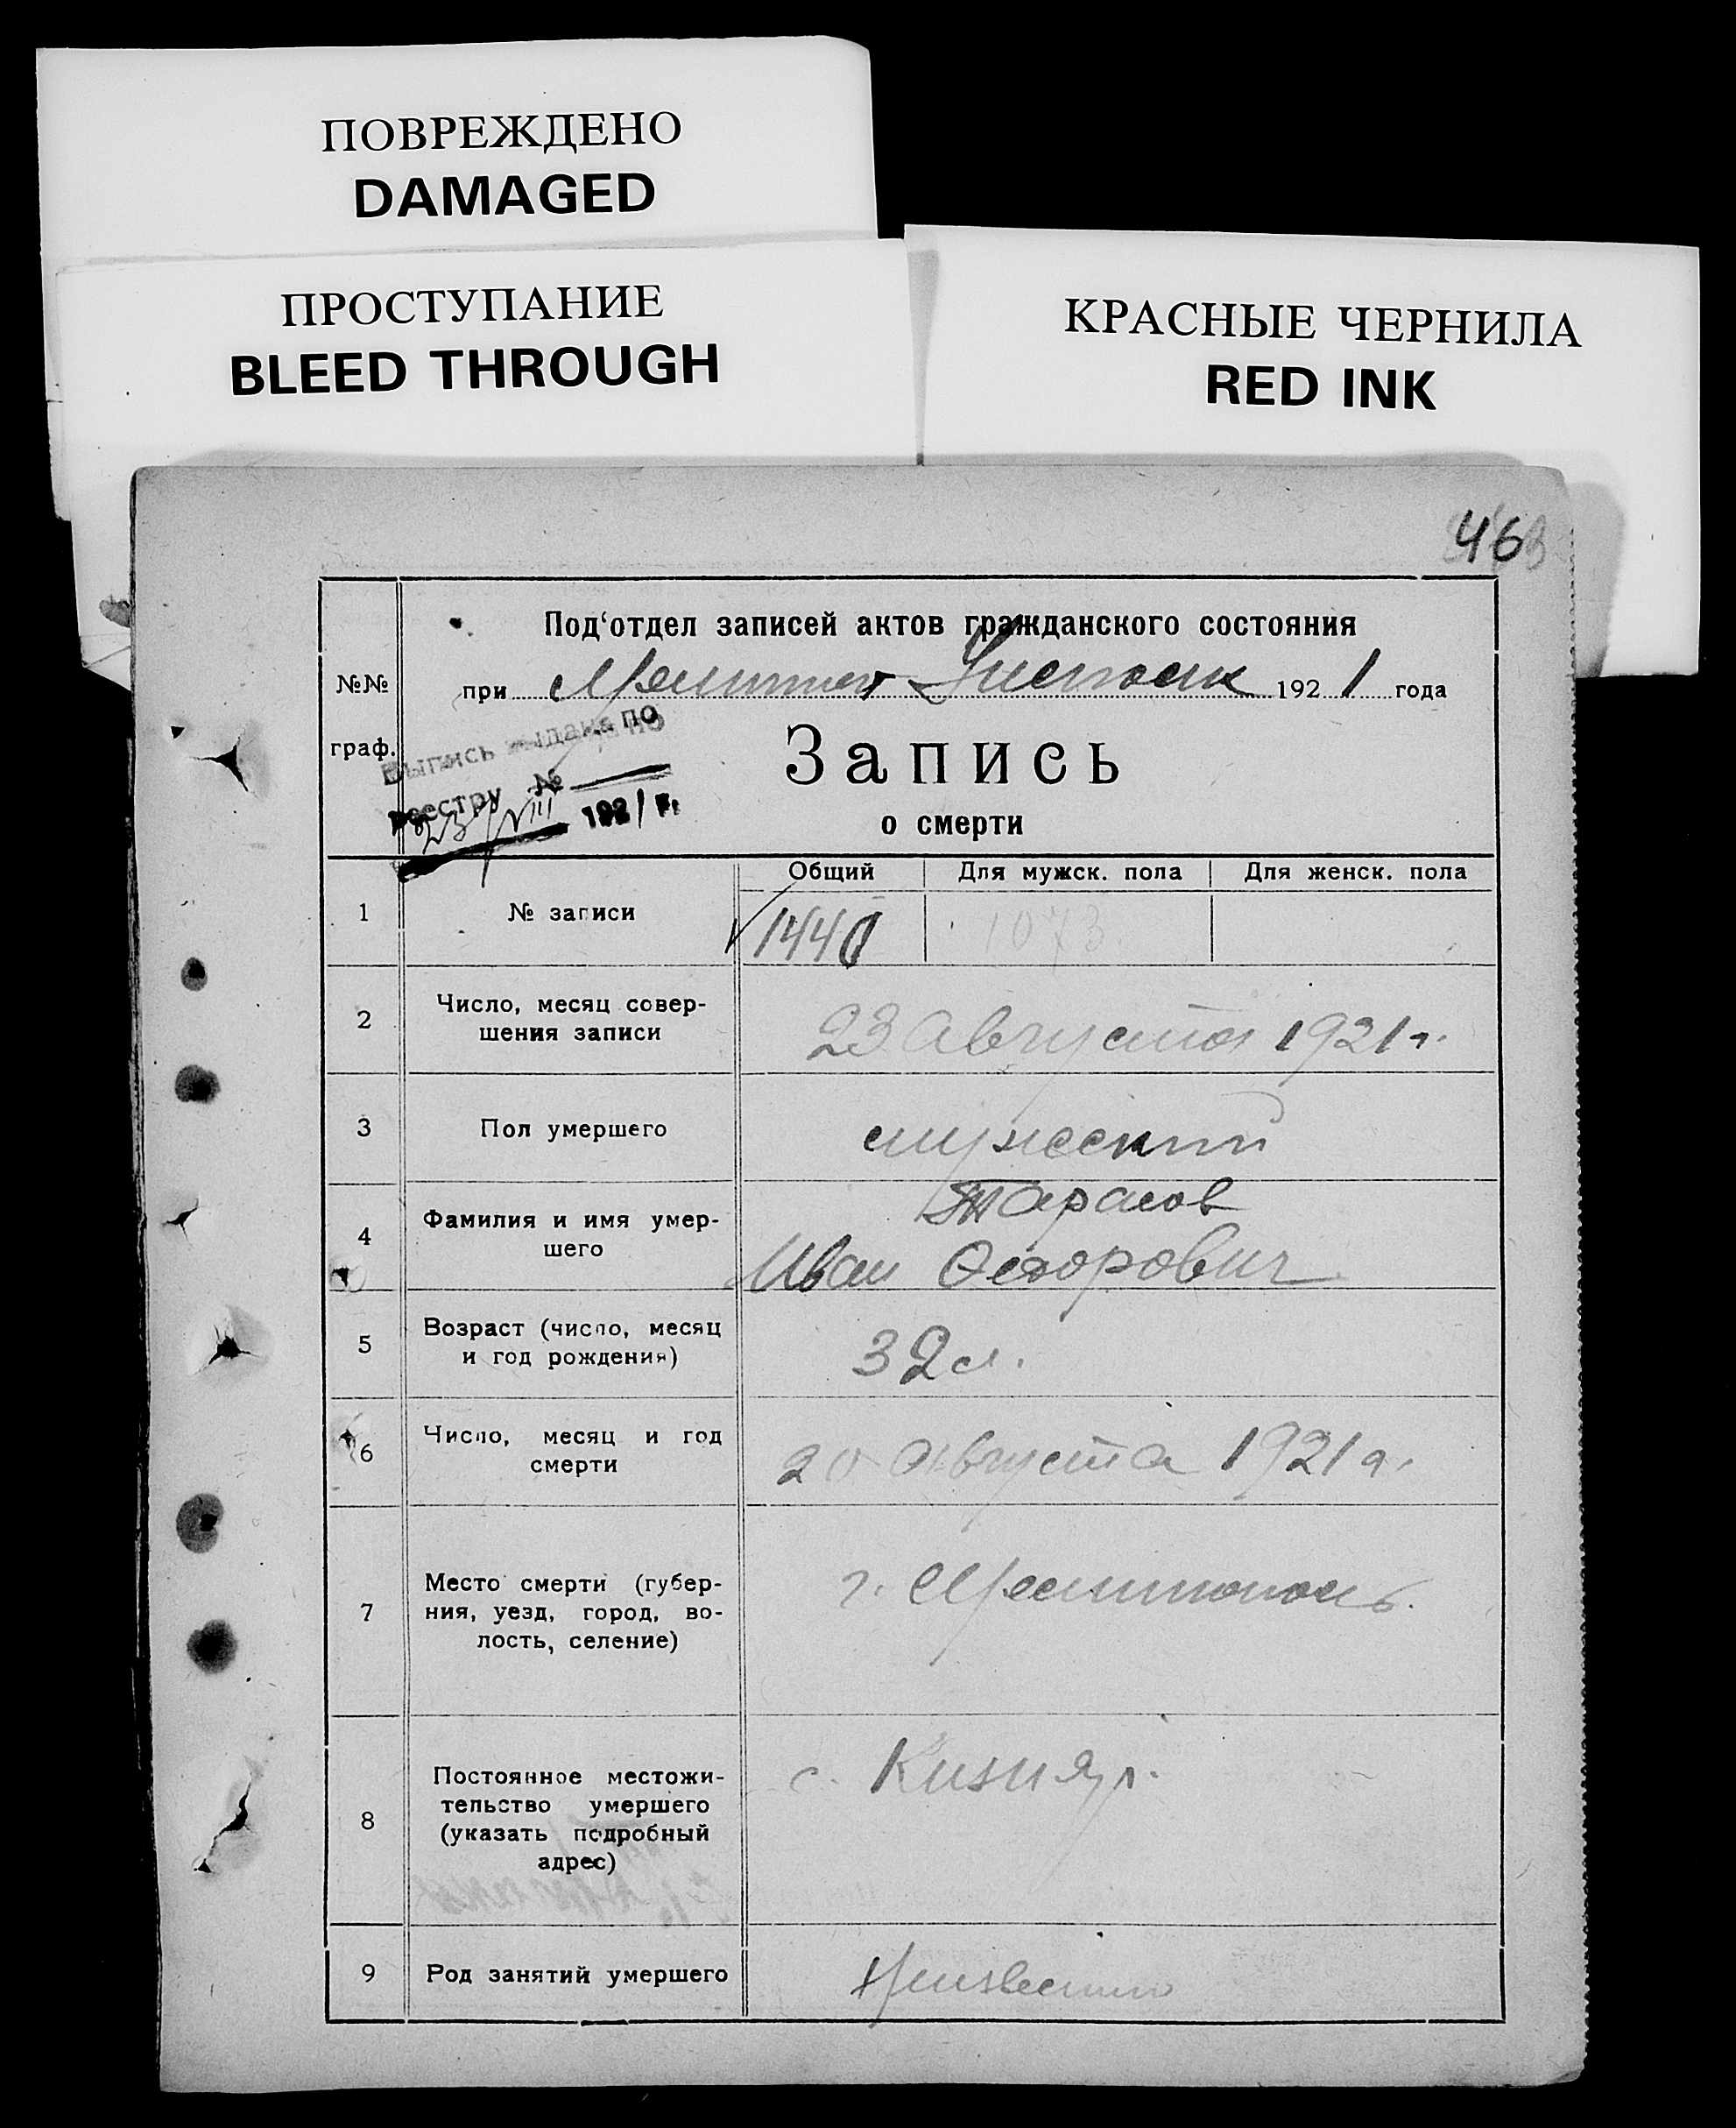 ПОВРЕЖДЕНО
DAMAGED
ПРОСТУПАНИЕ
BLEED THROUGH
КРАСНЫЕ ЧЕРНИЛА
RED INK
46
Под‘отдел записей актов гражданского состояния
при 1921 года
№№
граф.
Выпись выдана по
реестру №
23/VIII 1921 г.
Запись
о смерти
Общий Для мужск. пола Для женск. пола
1 № записи 1440 1073
2 Число, месяц совер-
шения записи
23 Августа 1921 г.
3 Пол умершего мужской
4 Фамилия и имя умер-
шего
Тарасов
Иван Федорович
5 Возраст (число, месяц
и год рождения)
32 л.
6 Число, месяц и год
смерти
20 августа 1921 г.
7 Место смерти (губер-
ния, уезд, город, во-
лость, селение)
г. Мелитополь.
8 Постоянное местожи-
тельство умершего
(указать подробный
адрес)
с. Кизияр.
9 Род занятий умершего Неизвестно